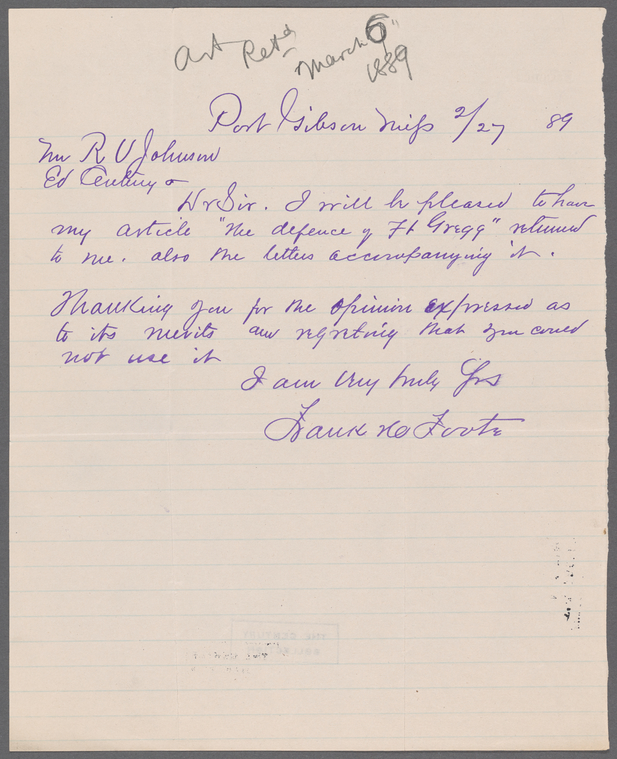 Art Retd
March 6"
1889
Port Gibson Miss 2/27 89
Mr R U Johnson
Ed Century -
Dr Sir. I will be pleased to have
my article "The defence of Ft Gregg" returned
to me. also the letters accompanying it.
Thanking you for the opinion expressed as
to its merits and regreting that you could
not use it
I am Very truly Yrs
Frank H Foote